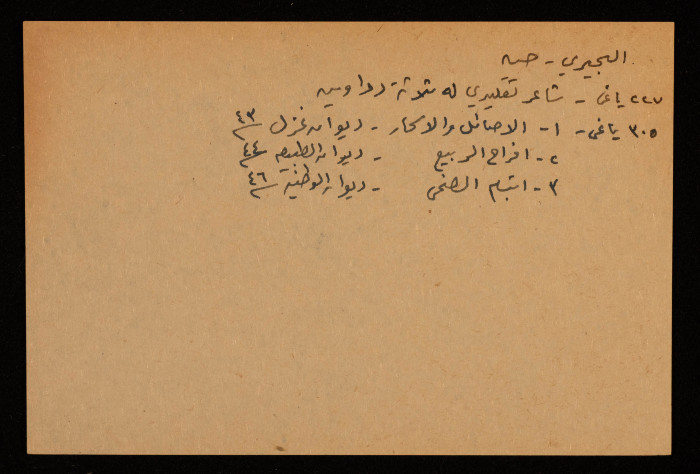 البحيري - حسن
٢٢٧ ياغي - شاعر تقليدي له ثلاثة دواوين
٣٠٥ ياغي - ١- الاصائل والاسحار - ديوان غزل ٤٣
٢- افراح الربيع - ديوان الطبيعة ٤٤
٣- ابتسام الضحى - ديوان الوطنية ٤٦